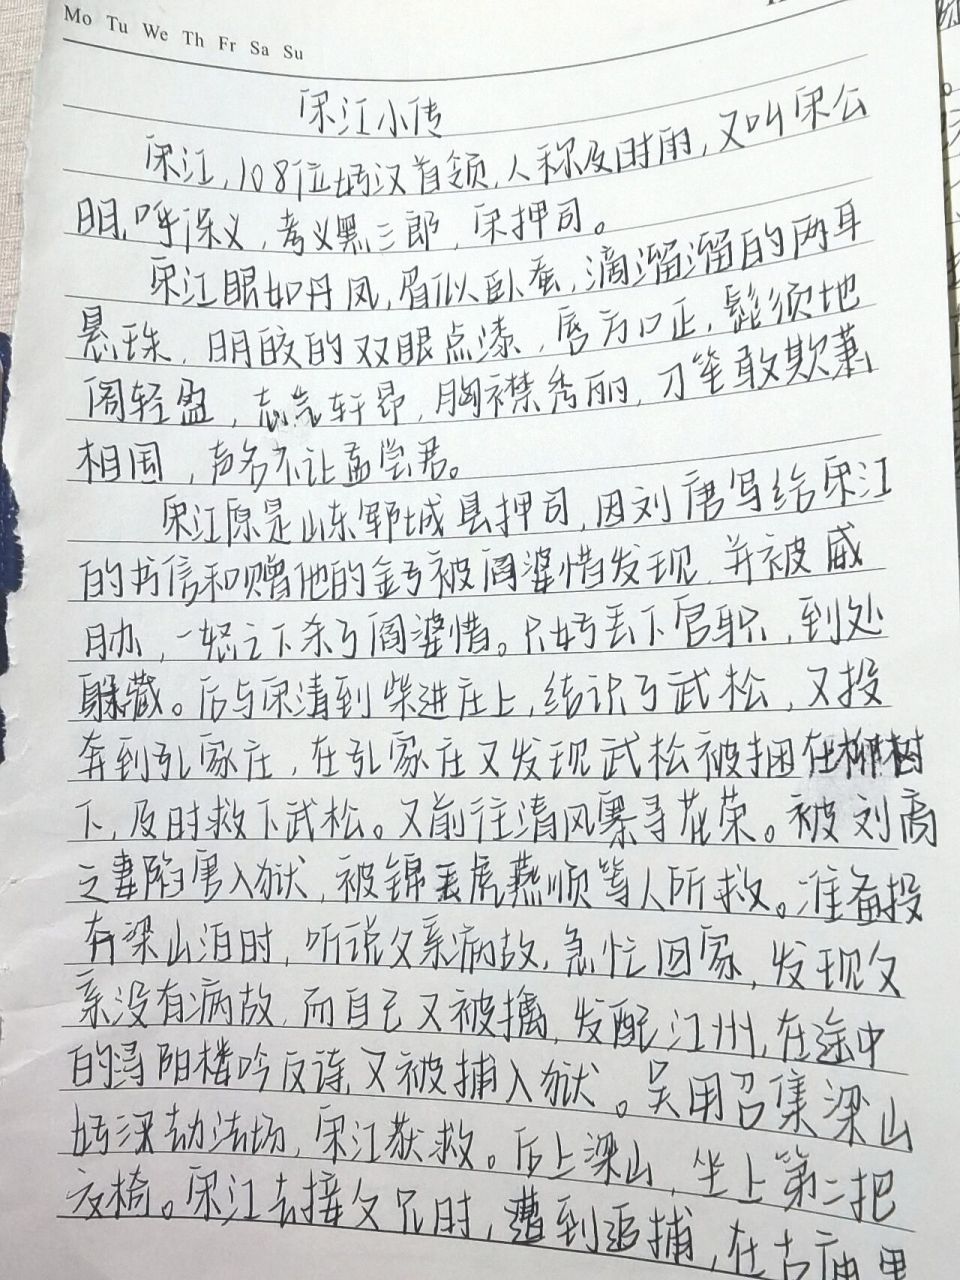 Mo Tu We Th Fr Sa Su
宋江小传
宋江,108位好汉首领,人称及时雨,又叫宋公
明,呼保义,孝义黑三郎,宋押司。
宋江眼如丹凤,眉似卧蚕,滴溜溜的两耳
悬珠,明皎的双眼点漆,唇方口正,髭须地
阁轻盈,志气轩昂,胸襟秀丽,刀笔敢欺萧
相国,声名不让孟尝君。
宋江原是山东郓城县押司,因刘唐写给宋江
的书信和赠他的金子被阎婆惜发现,并被威
胁,一怒之下杀了阎婆惜。只好丢下官职,到处
躲藏。后与宋清到柴进庄上,结识了武松,又投
奔到孔家庄,在孔家庄又发现武松被捆在柳树
下,及时救下武松。又前往清风寨寻花荣。被刘高
之妻陷害入狱,被锦毛虎燕顺等人所救。准备投
奔梁山泊时,听说父亲病故,急忙回家,发现父
亲没有病故,而自己又被擒,发配江州,在途中
的浔阳楼吟反诗,又被捕入狱。吴用召集梁山
好汉劫法场,宋江获救。后上梁山,坐上第二把
交椅。宋江去接父兄时,遭到追捕,在古庙里